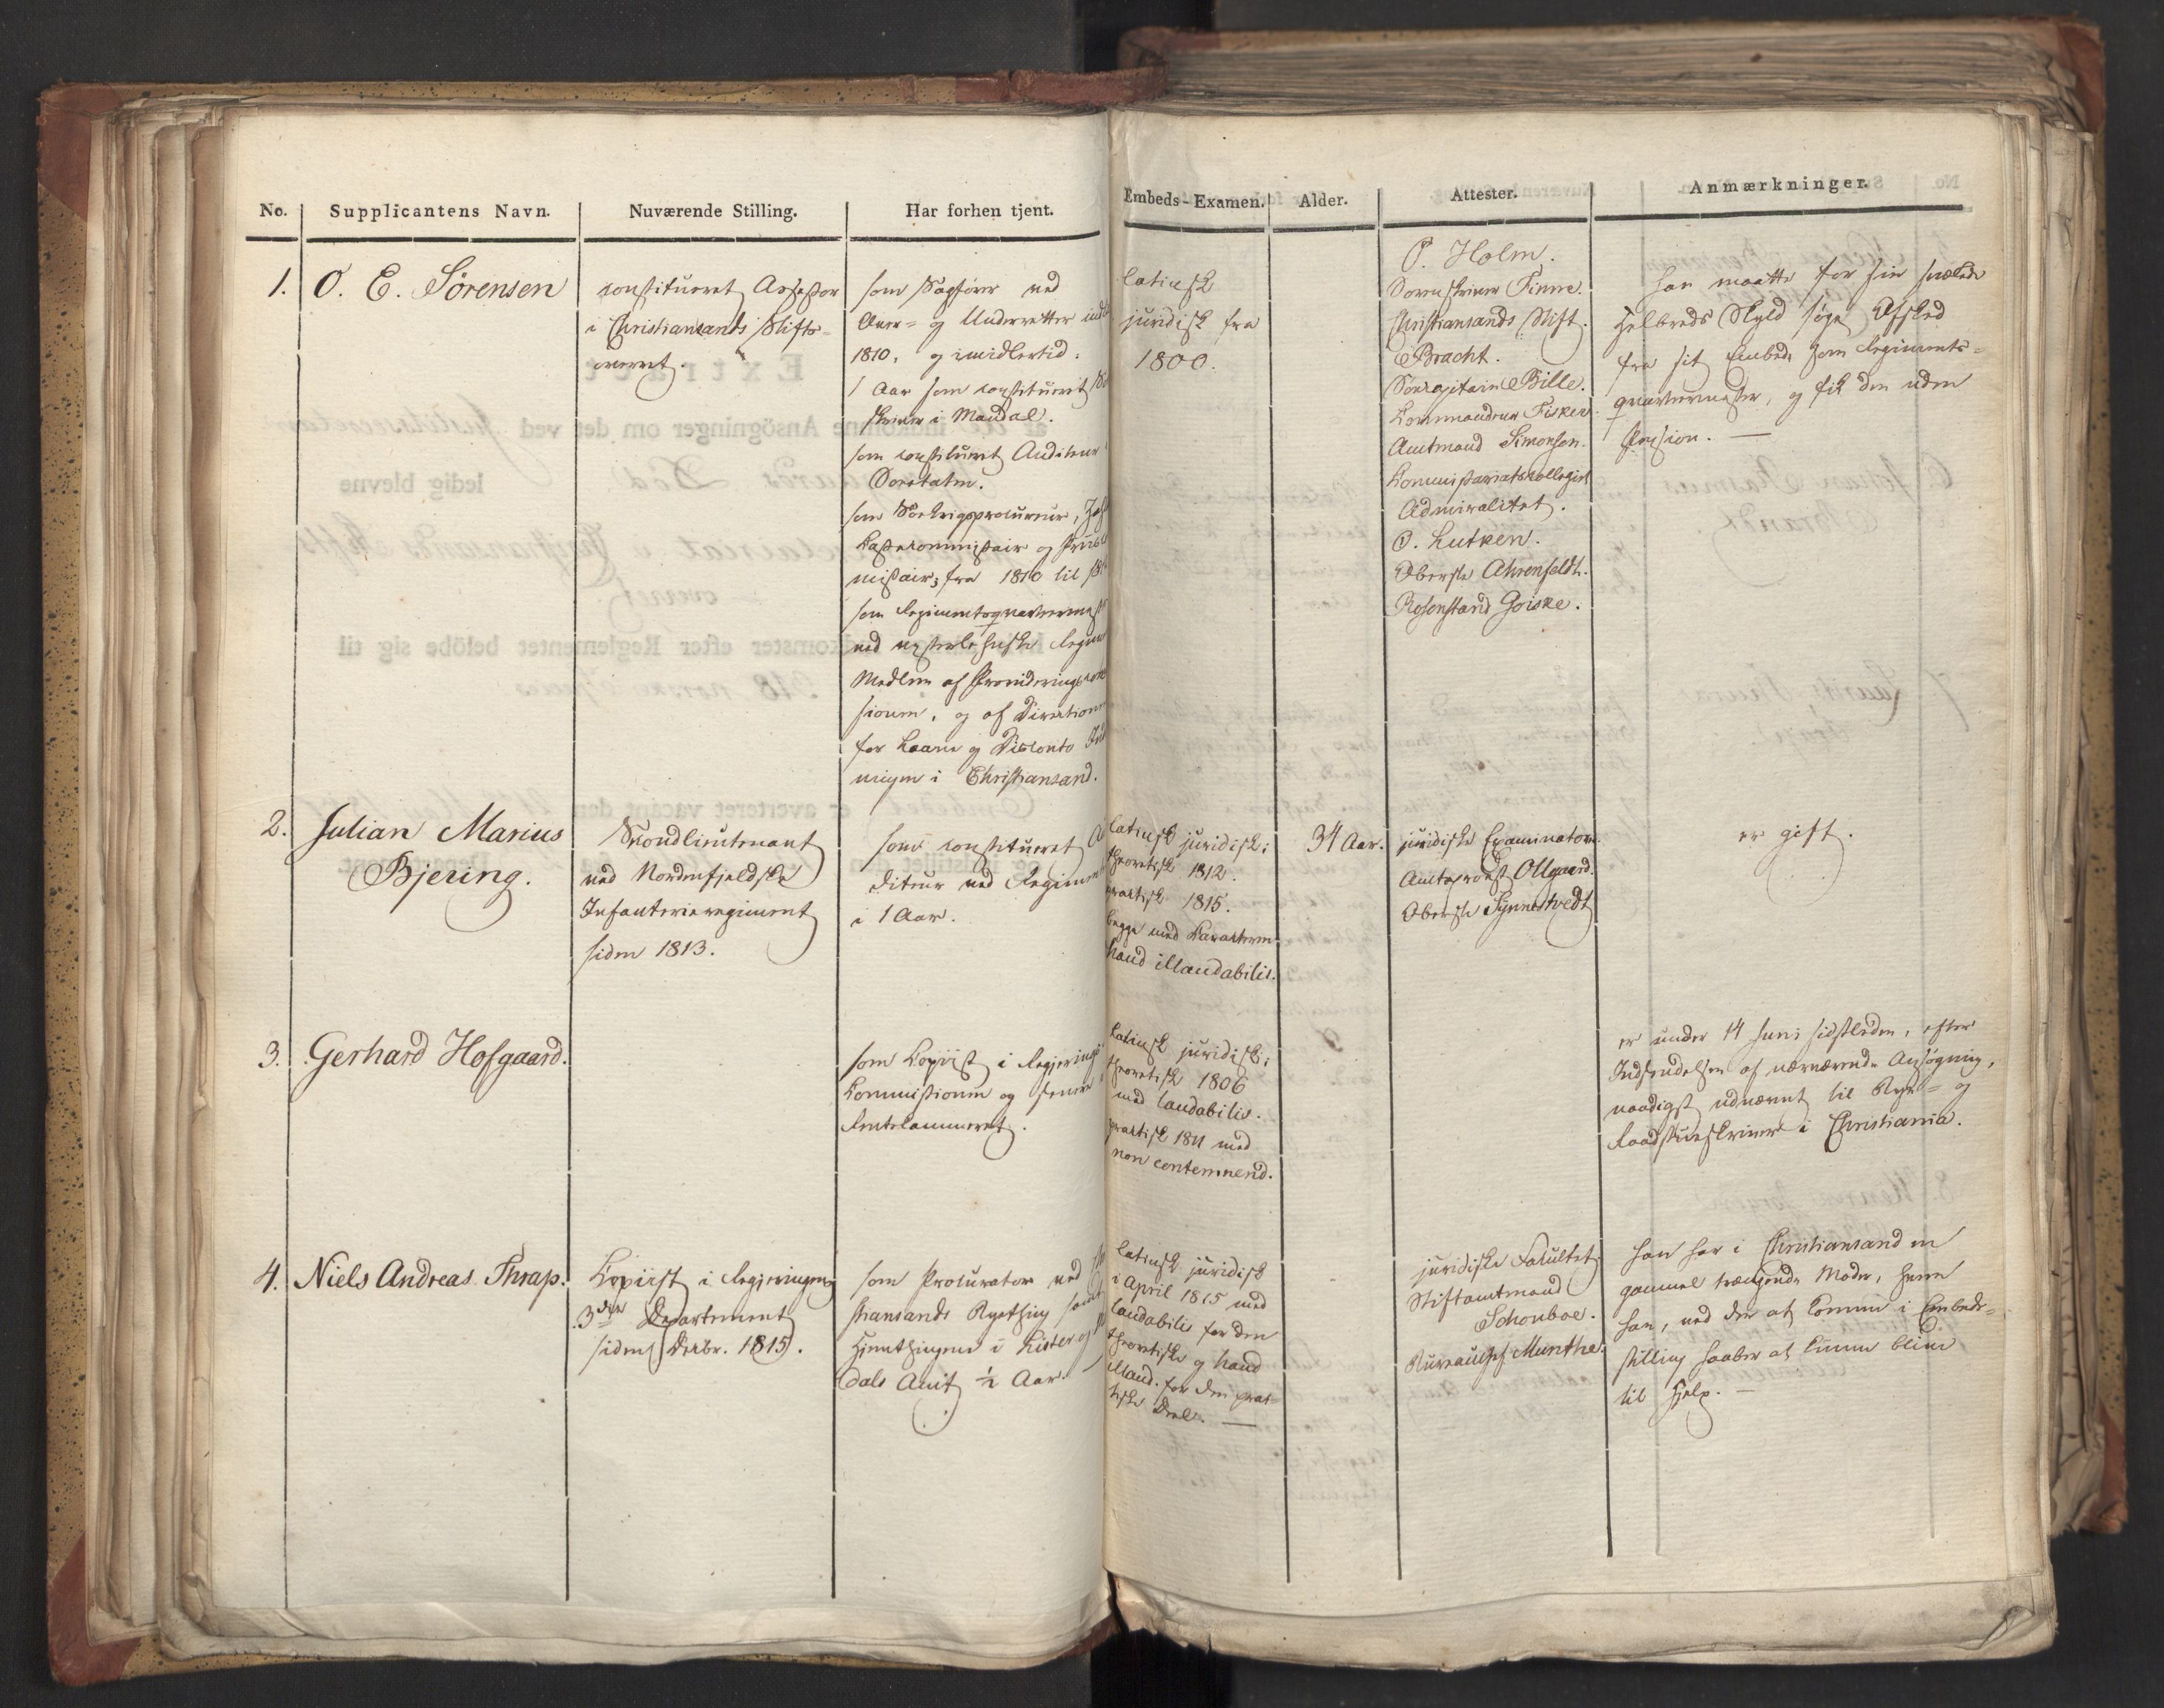 No.
Supplicantens Navn.
Nuværende Stilling.
Har forhen tjent.
Embeds-Examen.
Alder.
Attester.
Anmærkninger.
1.
O. E. Sörensen
constitueret Assessor
i Christiansands Stifts-
overret.
som Sagförer ved
Over- og Underretter
1810, og imidlertid
1 Aar som constitueret
skriver i Mandal.
som constitueret Auditeur
Søretaten.
som Søkrigsprocureur,
fra 1810 til
som Regimentsqvarteermest
ved vesterlehnske Regim
Medlem af Provideringscom
sionen, og af Directionen
for Laane og Disconto
ningen i Christiansand.
latinsk
juridisk fra
1800.
P. Holm.
Sorenskriver Finne.
Christiansands Stift.
Bracht.
Søecapitain Bille.
Kommandeur Fisker.
Amtmand Simonsen.
Kommissariatskollegiet
Admiralitet.
O. Lutken.
Oberste Ahrenfeldt.
Rosenstand Goiske.
han maatte for sin svækkede
Helbreds Skyld søge Afsked
fra sit Embede som Regiments-
qvarteermester, og fik den uden
Pension. —
2.
Julian Marius
Bjering.
Secondlieutenant
ved Nordenfjeldske
Infanterieregiment
siden 1813.
som constitueret Au
diteur ved Regimen
i 1 Aar.
latinsk juridisk;
theoretisk 1812.
practisk 1815.
begge med Karakteren
haud illaudabilis.
34 Aar.
juridiske Examinatorer.
Amtsprovst Ollgaard.
Oberste Synnestvedt
er gift.
3.
Gerhard Hofgaard.
som Copiist i Regjerings-
Commissionen og senere
Rentekammeret.
latinsk juridisk;
theoretisk 1806
med laudabilis.
practisk 1811 med
non contemnend.
er under 14 Juni sidstleden, efter
Indsendelsen af nærværende Ansøgning,
naadigst udnævnt til Bye- og
Raadstueskriver i Christiania.
4.
Niels Andreas Thrap.
Copiist i Regjeringens
3die Departement
siden Decbr. 1815.
som Procurator ved
stiansands Byething samt
i Lister og
dals Amt ½ Aar.
latinsk juridisk
i April 1815 med
laudabilis for den
theoretiske og haud
illaud. for den prac-
tiske Deel. —
juridiske Facultet
Stiftamtmand
Schouboe.
Bureauchef Munthe.
han har i Christiansand en
gammel trængende Moder, hvem
han, ved der at komme i Embeds-
stilling haaber at kunne blive
til Hjelp. —